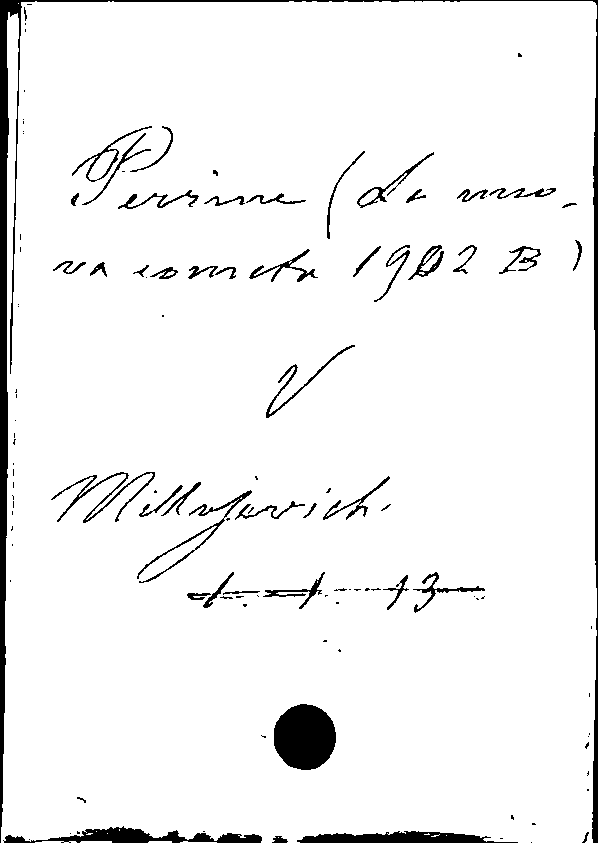 Perrine (La nuo-
va cometa 1902 B)
V
Millosevich.
1. 1. 13